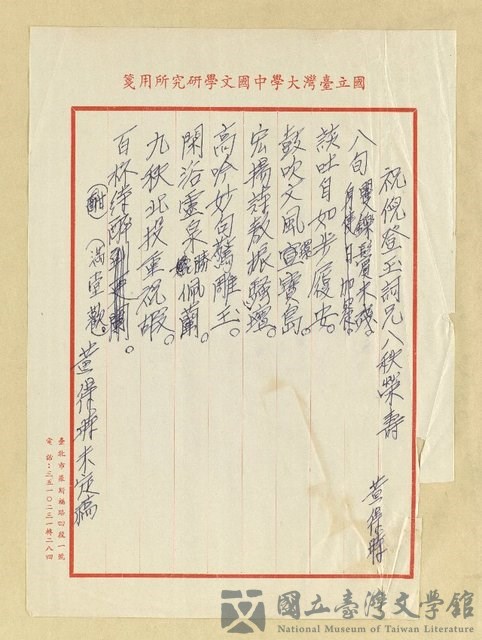 國立臺灣大學中國文學研究所用箋
祝倪登玉詞兄八秩榮壽
黃得時
八旬矍鑠鬢未殘。
談吐自如步履安。
鼓吹文風宣寶島。
宏揚詩教振騷壇。
高吟妙句驚雕玉。
閑浴靈泉勝佩蘭。
九秩北投重祝嘏。
百杯待
酣
滿堂歡。
黃得時未定稿
臺北市羅斯福路四段一號
電話:三五一〇二三一轉二八四
國立臺灣文學館
National Museum of Taiwan Literature